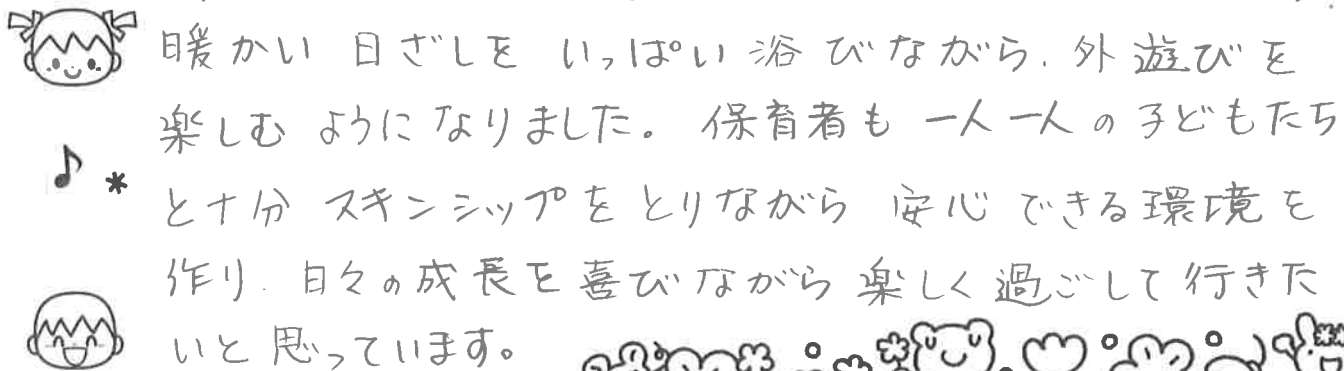 暖かい 日ざしを いっぱい 浴びながら、外遊びを
楽しむ ようになりました。 保育者も 一人一人の 子どもたち
と十分 スキンシップを とりながら 安心 できる環境を
作り、日々の成長を喜びながら 楽しく過ごして行きた
いと思っています。